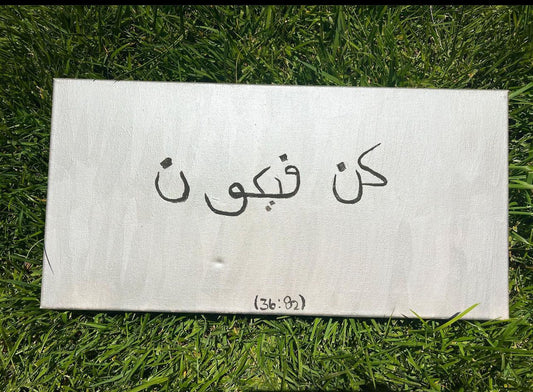 كن فيكون
(36:82)